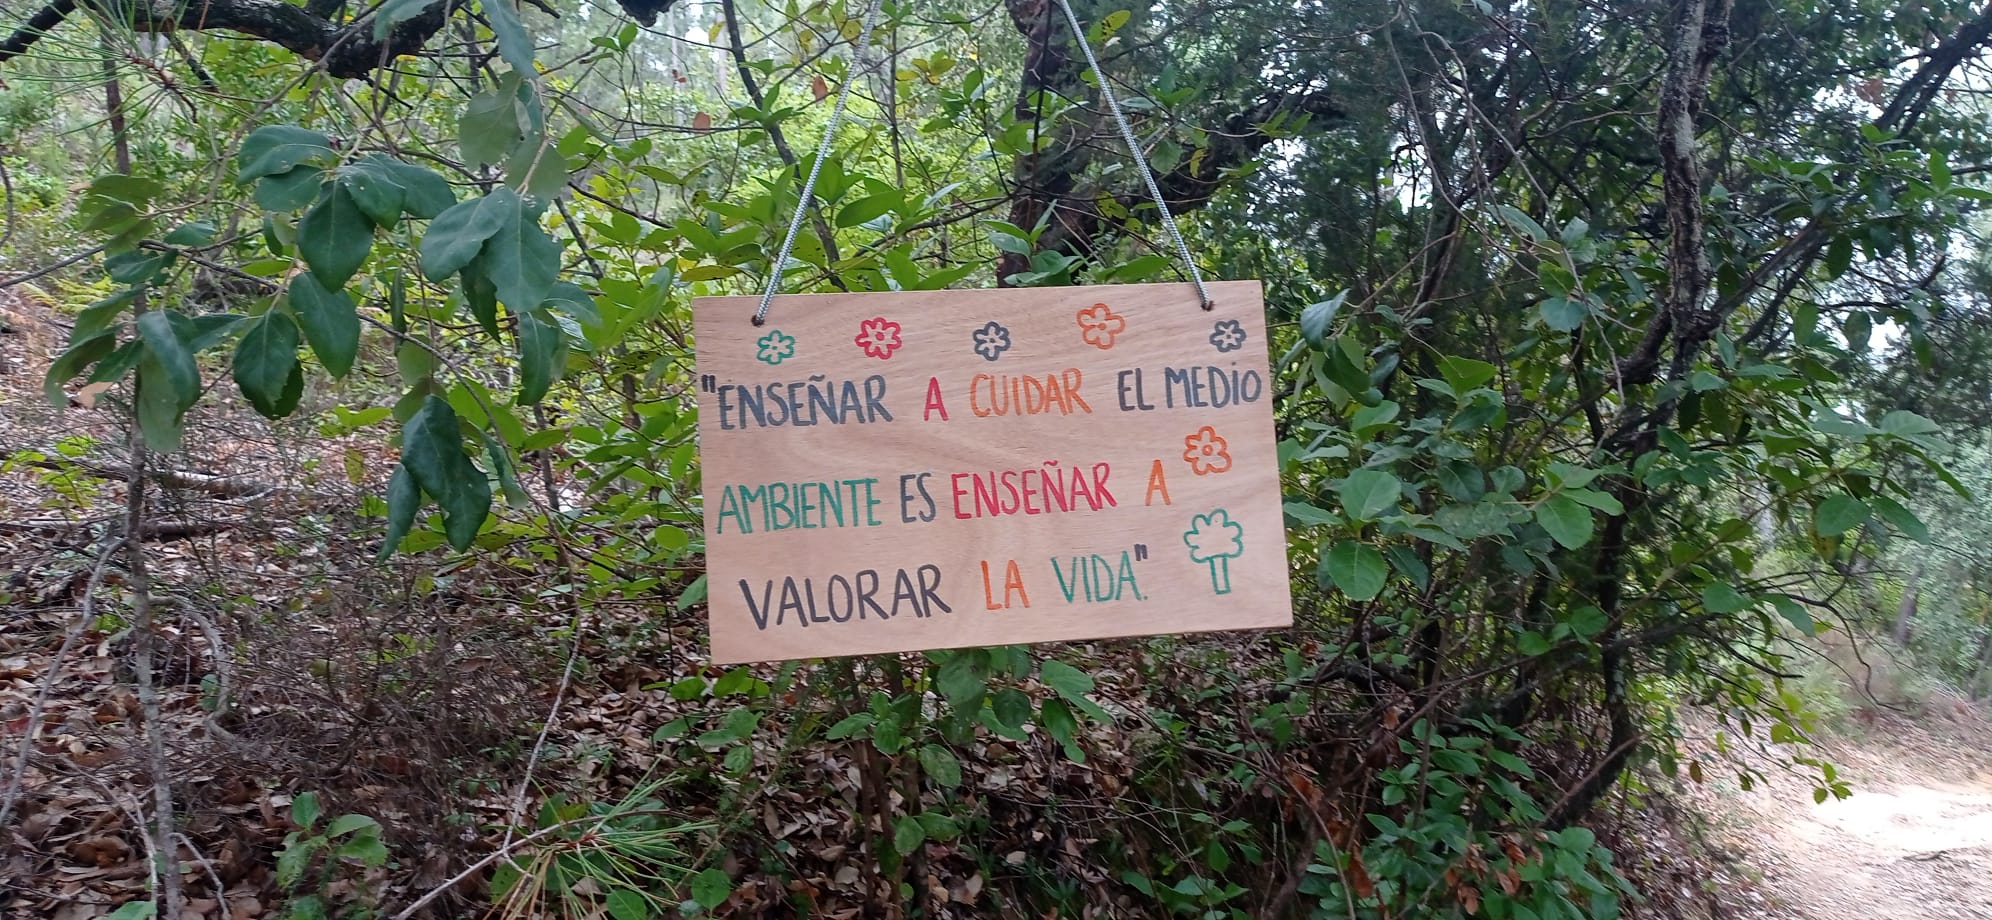 "ENSEÑAR A CUIDAR EL MEDIO
AMBIENTE ES ENSEÑAR A
VALORAR LA VIDA."